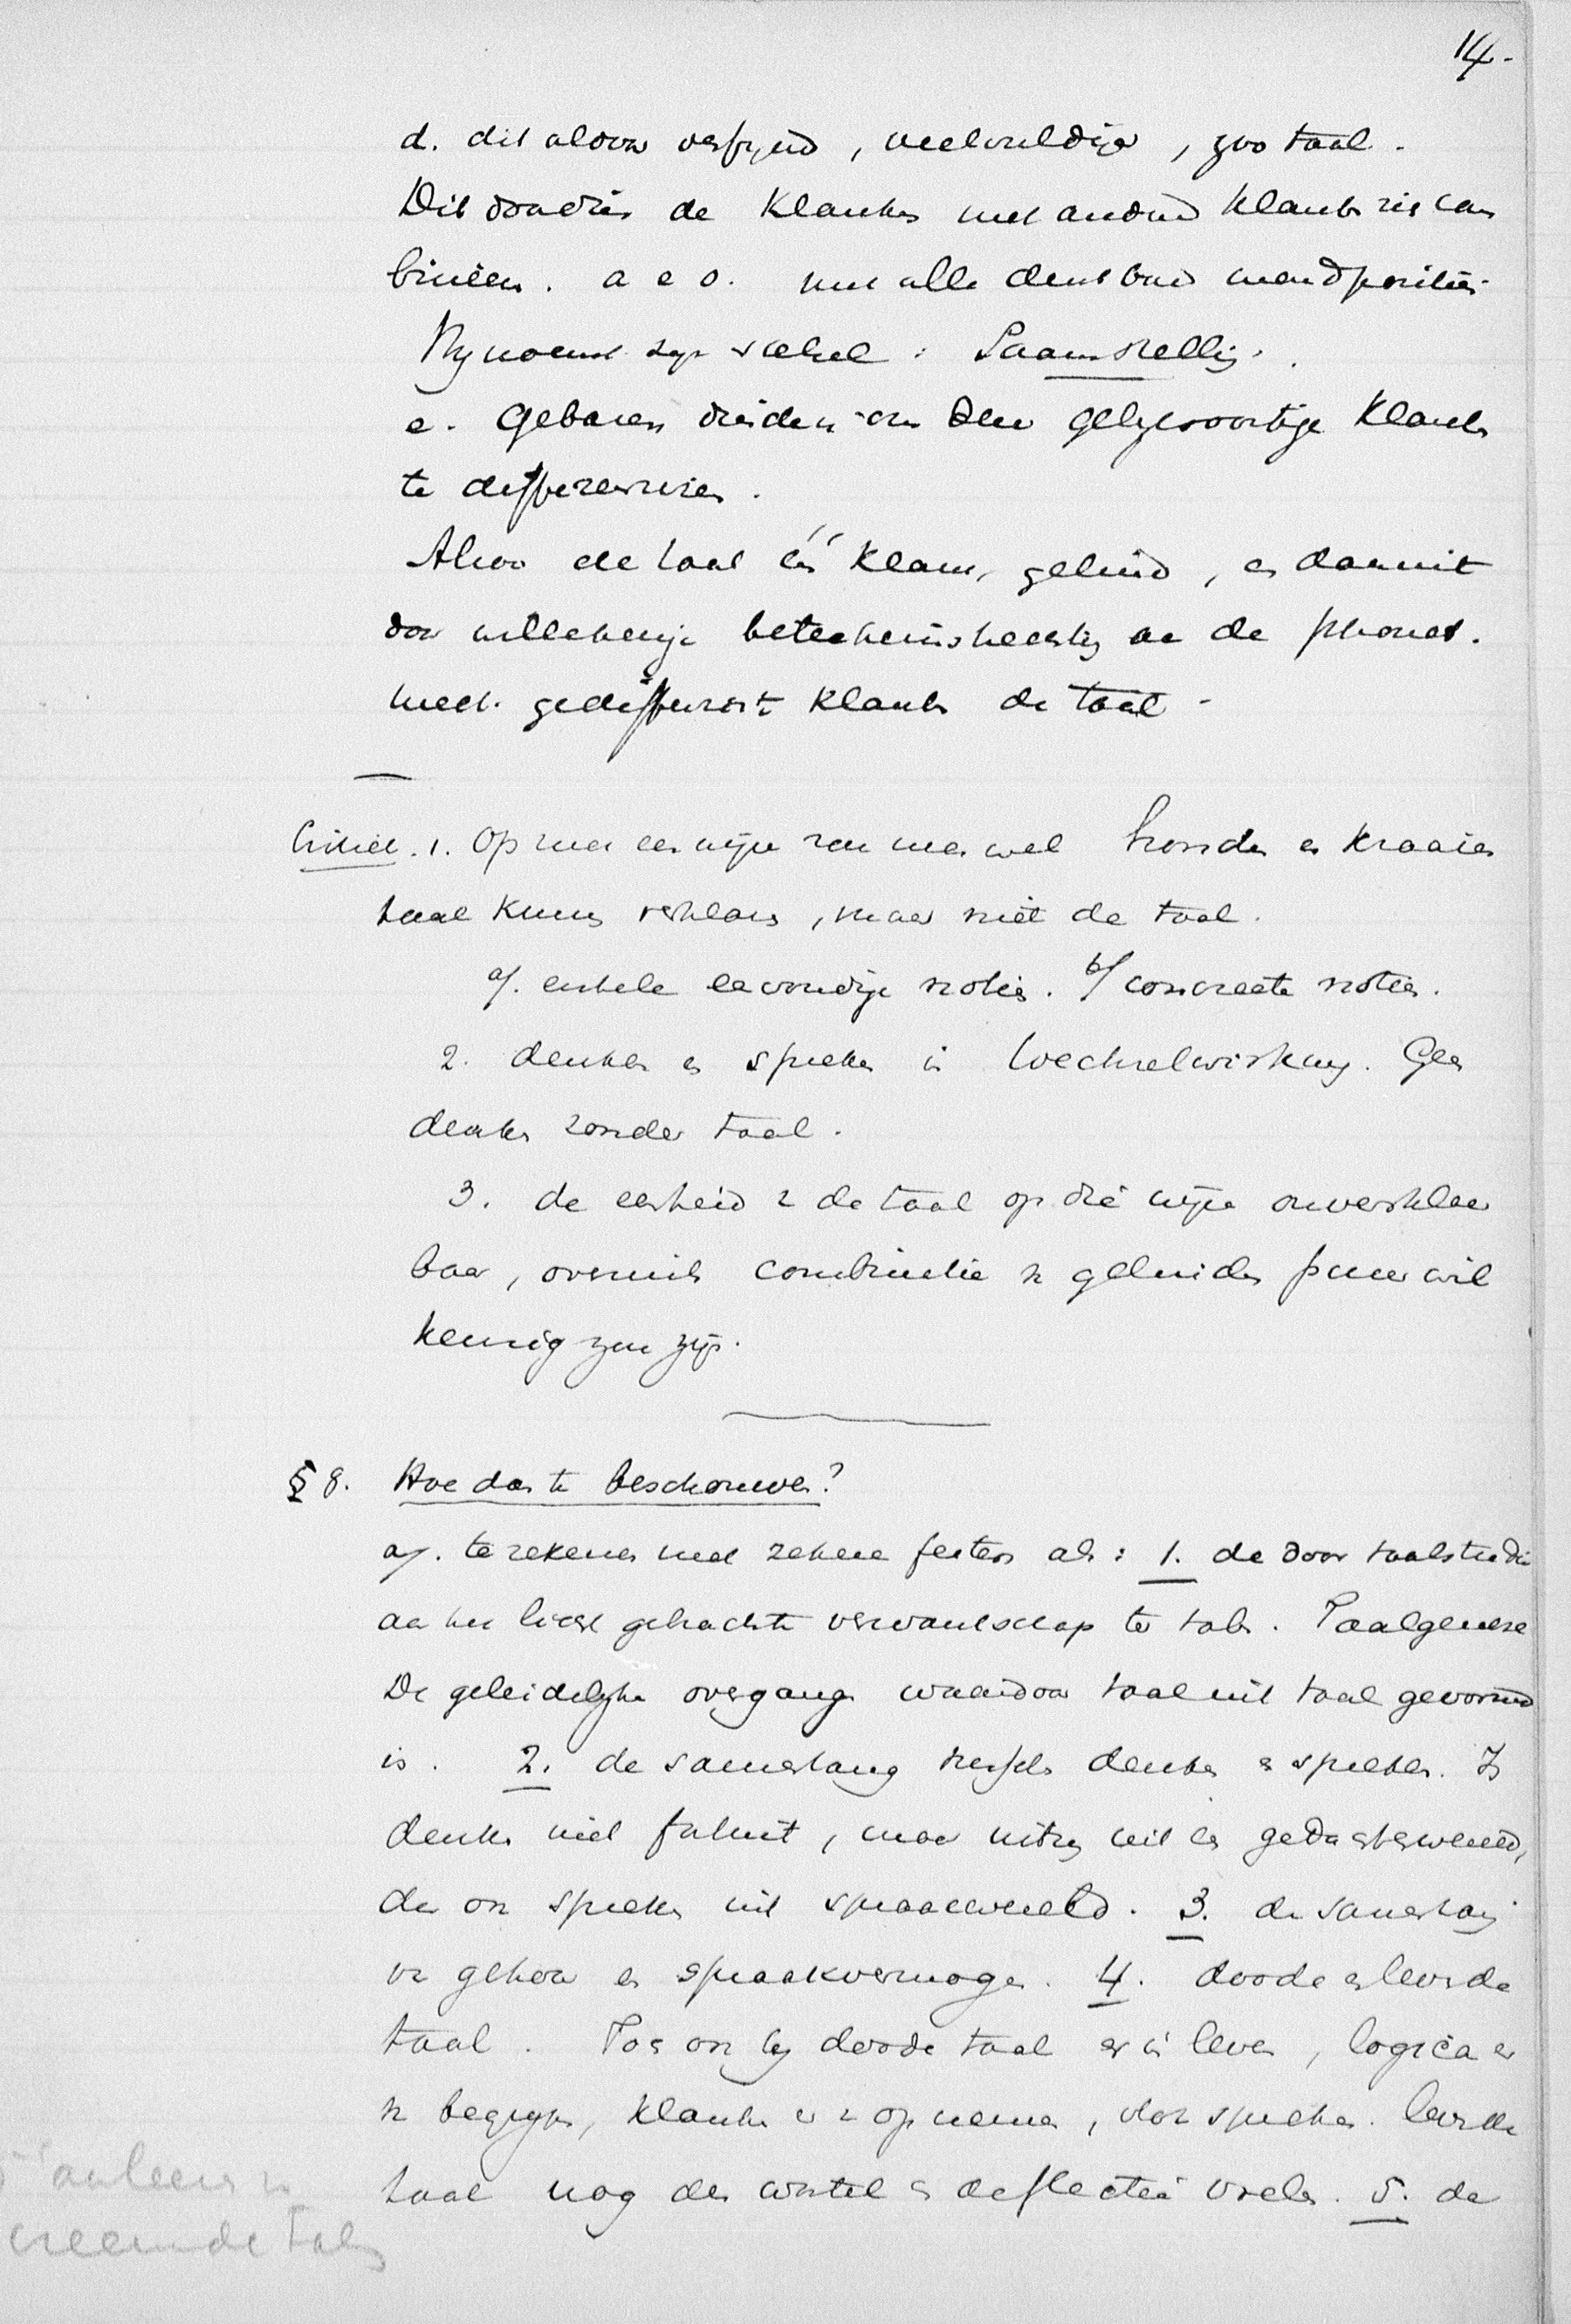 14.
d. dit aldoor verfijnd, veelvuldiger, zoo taal.
Dit doordien de klanken met andere klanken zich com
bineeren. a e o. met alle denkbare mondposities
Hij noemt zijn stelsel: Saamstelling.
e. Gebaren dienden om deze gelijksoortige klanken
te differentieren.
Alzoo de taal één klank, geluid, en daaruit
door willekeurige beteekenishechting aan de phonet.
mech. gedifferent. klanken de taal.
Critiek. 1. Op zulk een wijze zou men wel honden en kraaien
taal kunnen verklaren, maar niet de taal.
a/. enkele eenvoudige notiën. b/ concreete notiën.
2. denken en spreken in Wechselwirkung. Geen
denken zonder taal.
3. de eenheid v de taal op die wijze onverklaar
baar, overmits combinatie v geluiden puur wil
keurig zou zijn.
§ 8. Hoe dan te beschouwen?
a/. te rekenen met zekere feiten als: 1. de door taalstudie
aan het licht gebrachte verwantschap der talen. Taalgenese
De geleidelijke overgang waardoor taal uit taal gevormd
is. 2. de samenhang tusschen denken en spreken. Is
denken niet faluit, maar uiting uit een gedachtenwereld,
dan ook spreken uit spraakwereld. 3. de samenhang
van gehoor en spraakvermogen. 4. doode en levende
taal. Toch ook bij doode taal er in leven, logica er
v begrijpen, klanken er v opnemen, ook spreken. levende
taal nog den wortel en deflectie voelen. 5. de
aanleeren v
vreemde talen